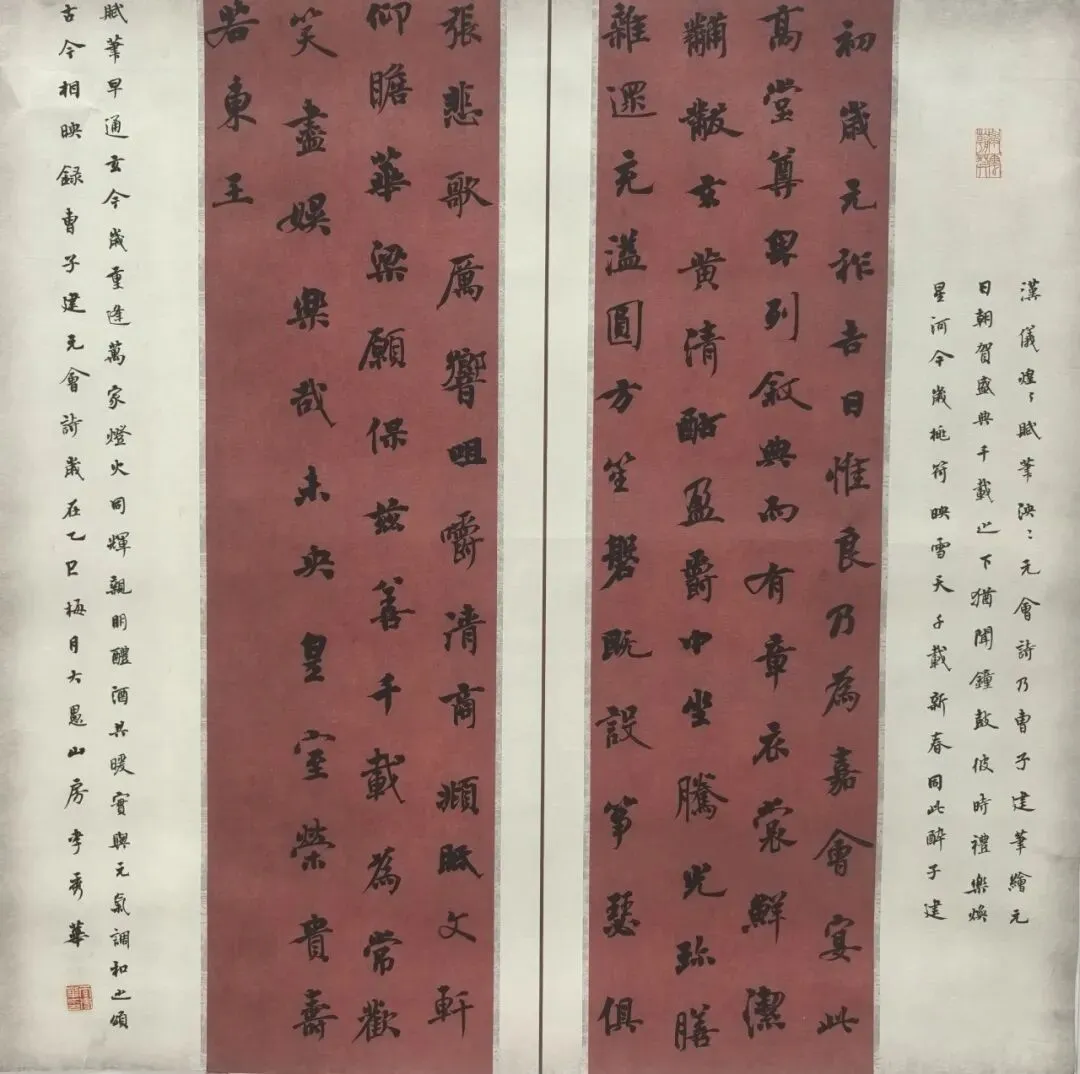 漢儀煌〻賦筆泱〻元會詩乃曹子建筆繪元
日朝賀盛典千載之下猶聞鐘鼓彼時禮樂煥
星河今歲桃符映雪天千載新春同此醉子建
初歲元祚吉日惟良乃為嘉會宴此
高堂尊卑列敘典而有章衣裳鮮潔
黼黻玄黃清酤盈爵中坐騰光珍膳
雜遝充溢圓方笙磬既設箏瑟俱
張悲歌厲響咀嚼清商頫眂文軒
仰瞻華梁願保茲善千載為常歡
笑盡娛樂哉未央皇室榮貴壽
若東王
賦筆早通玄今歲重逢萬家燈火同輝親朋醴酒共暖實與元氣調和之頌
古今相映錄曹子建元會詩歲在乙巳梅月大愚山房李秀華